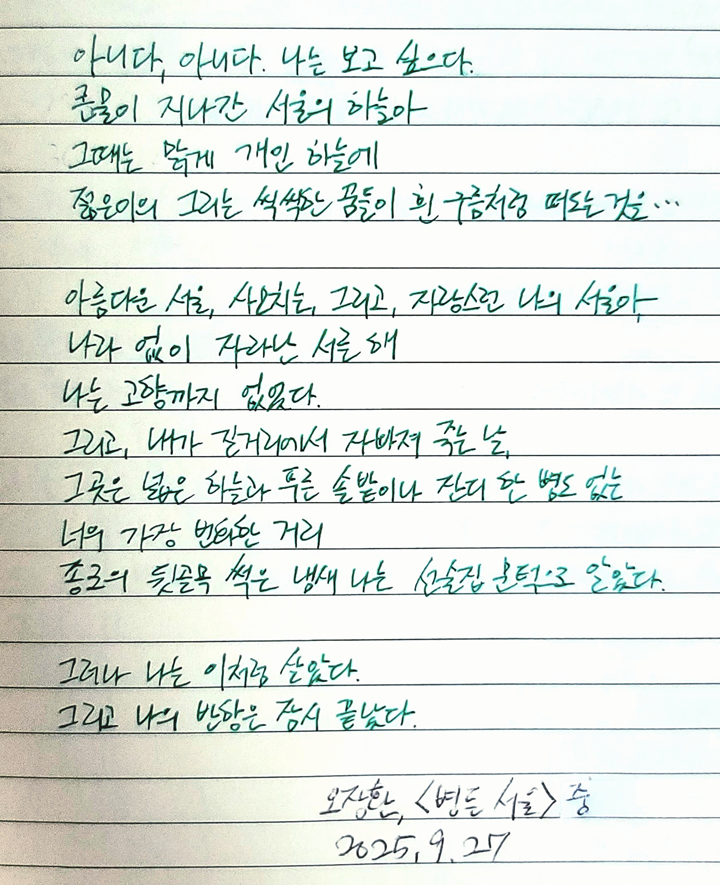 아니다, 아니다. 나는 보고 싶으다.
큰물이 지나간 서울의 하늘아
그때는 맑게 개인 하늘에
젊은이의 그리는 씩씩한 꿈들이 흰 구름처럼 떠도는 것을…
아름다운 서울, 사모치는, 그리고, 자랑스런 나의 서울아,
나라 없이 자라난 서른 해
나는 고향까지 없었다.
그리고, 내가 길거리에서 자빠져 죽는 날,
그곳은 넓은 하늘과 푸른 솔밭이나 잔디 한 뼘도 없는
너의 가장 번화한 거리
종로의 뒷골목 썩은 냄새 나는 선술집 문턱으로 알았다.
그러나 나는 이처럼 살았다.
그리고 나의 반항은 잠시 끝났다.
오장환, <병든 서울> 중
2025. 9. 27